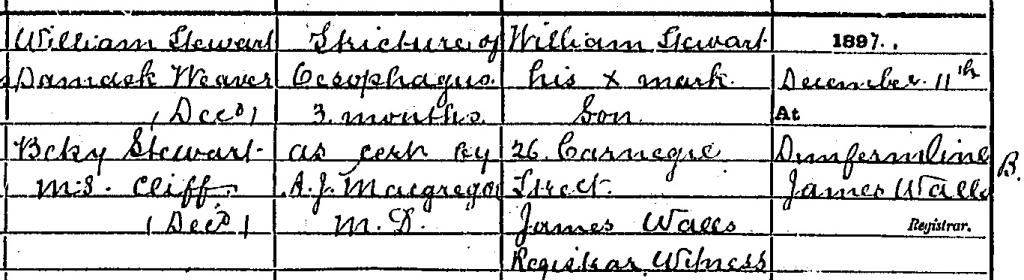 William Stewart
Damask Weaver
(Decd)
Beky Stewart
M.S. Cliff.
(Decd)
Stricture of
Oesophagus.
3. months.
as cert by
A. J. Macgregor
M. D.
William Stewart
his x mark.
Son
26. Carnegie
Street.
James Walls
Registrar, Witness
1897.,
December 11th
At
Dunfermline
James Walls
Registrar.
B.